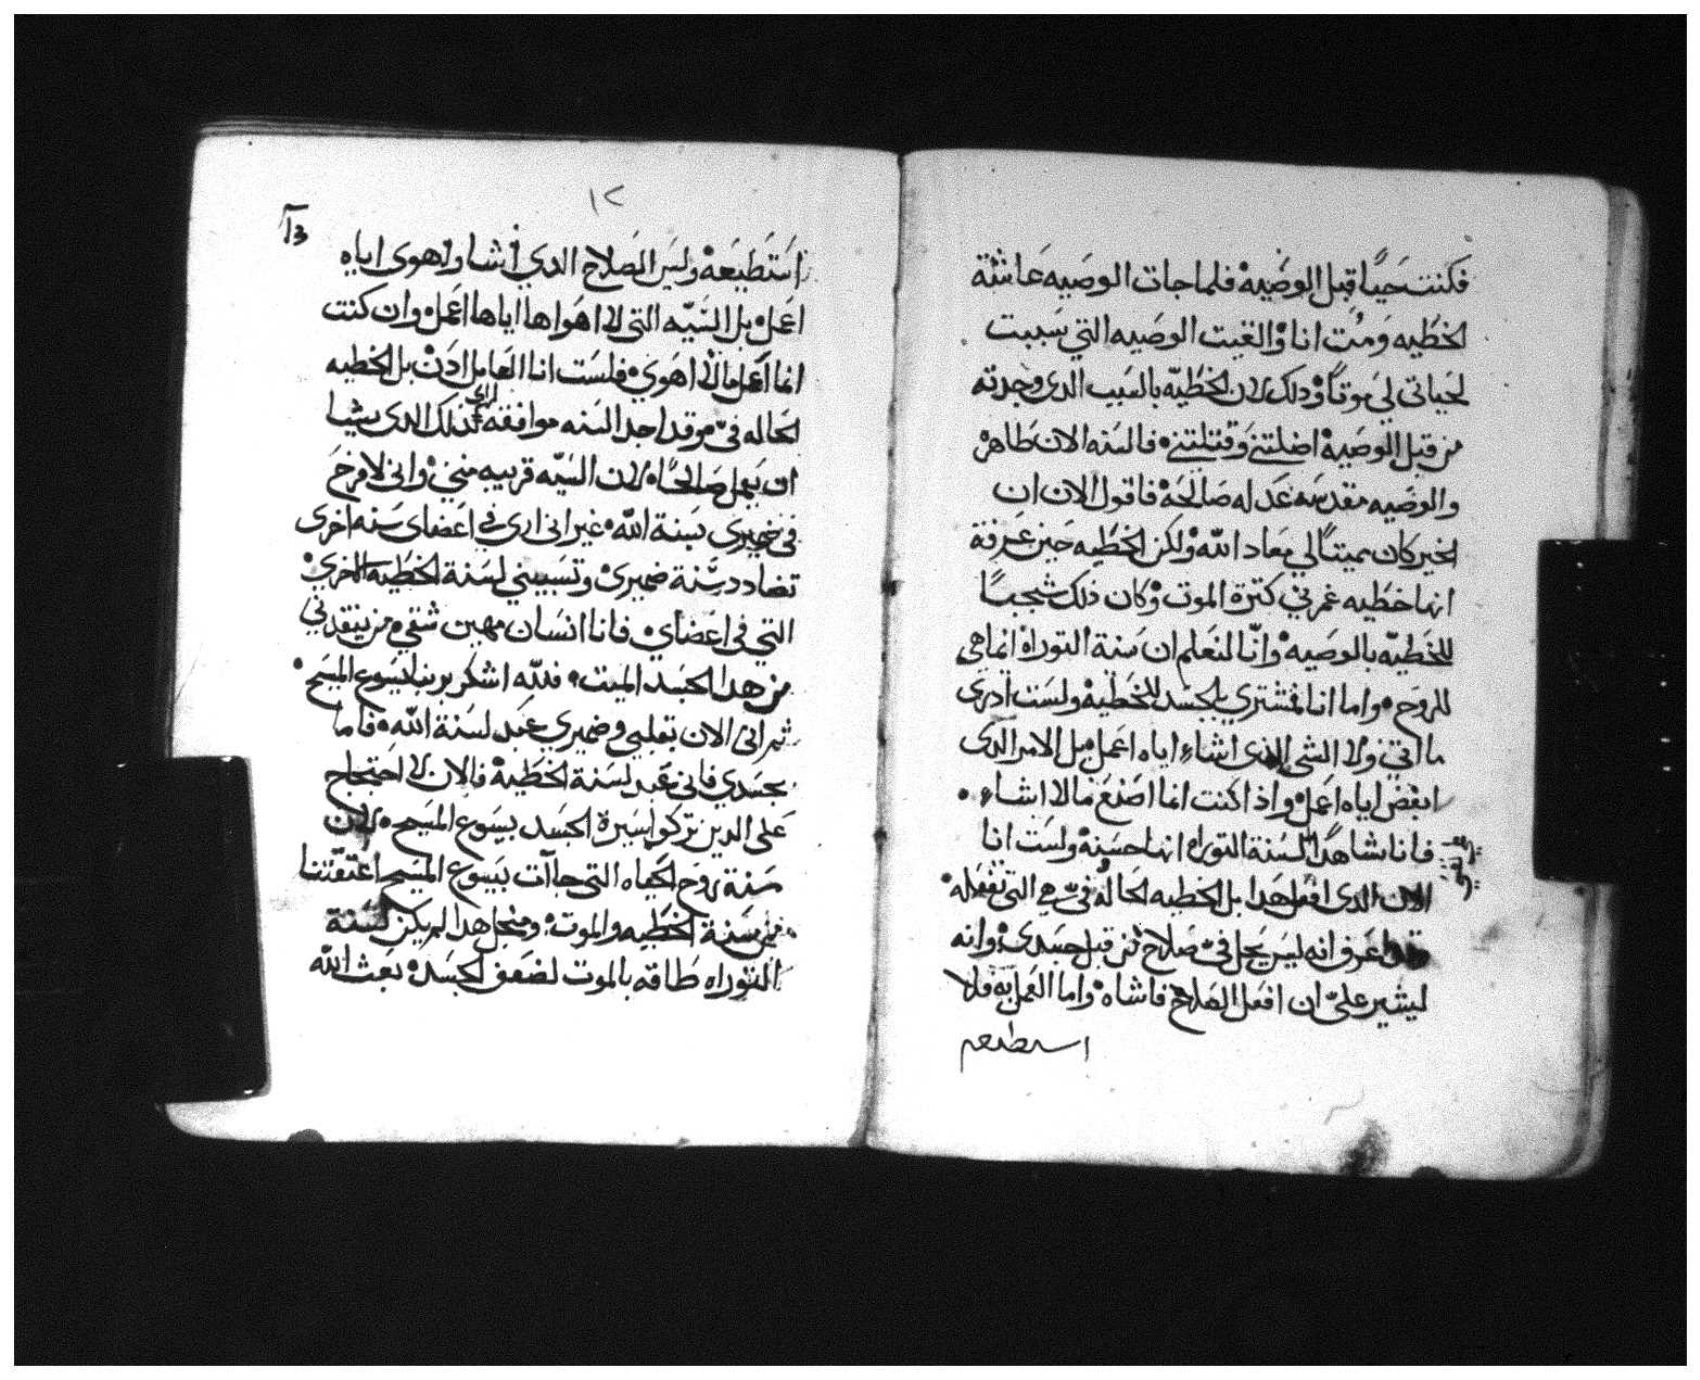 فكنت حيًا قبل الوصيه فلما جات الوصيه عاشة
الخطيه ومُت انا والفيت الوصيه التي سببت
لحياتي لي موتًا وذلك لان الخطيّه بالسبب الدى وجدته
من قبل الوصية اضلتني وقتلتني فالسنه الان طاهره
والوصيه مقدسه عدله صالحة فاقول الان ان
الخير كان مميتًا لي معاد الله ولكن الخطيه حين عرفة
انها خطيه غمرتني كترة الموت وكان ذلك شجبًا
للخطيّه بالوصيه وانّا لنعلم ان سنة التوراه انما هي
للروح واما انا فمشترى بالجسد للخطية ولست ادرى
ما اتي ولا الشي الذى اشاء اياه اعمل بل الامر الدى
ابغض اياه اعمل واذا كنت انما اصنع ما لا اشاء
فانا شاهدًا لسنة التوراه انها حسنه ولست انا
الان الدى افعل هدا بل الخطيه الحاله فيّ هي التي تفعله
وقد اعرف انه ليس يحل فيّ صلاح من قبل جسدى وانه
ليشير عليّ ان افعل الصلاح فاشاه واما العمل به فلا
استطيعه
١٢
استطيعه وليس الصلاح الدي اشا واهوى اياه
اعمل بل السيّه التي لا اهواها اياها اعمل وان كنت
انما اعمل ما لا اهوي فلست انا العامل ادن بل الخطيه
الحاله فيّ وقد اجد السنه موافقه لراى ذلك الدى يشا
ان يعمل صالحًا لان السيّه قريبه مني واني لافرح
في ضميرى بسنة الله غير اني ارى في اعضاى سنه اخرى
تضادد سنة ضميرى وتسبيني لسنة الخطيه الاخرى
التي في اعضاي فانا انسان مهين شقي من ينقدني
من هدا الجسد الميت فلله اشكر بربنا يسوع المسيح
ثم اني الان بقلبي وضميري عبد لسنة الله فاما
بجسدي فاني عبد لسنة الخطية فالان لا احتجاج
على الدين تركوا سيرة الجسد بيسوع المسيح لان
سنة روح الحياه التي جاآت بيسوع المسيح اعتقتنا
من سنة الخطيه والموت ومنجل هدا لم يكن لسنة
التوراه طاقه بالموت لضعف الجسد بعث الله